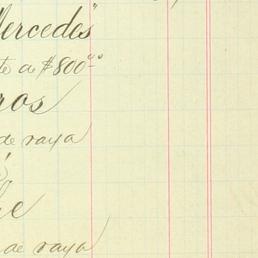 Mercedes"
te a $800.00
ros
de raya
e
de raya